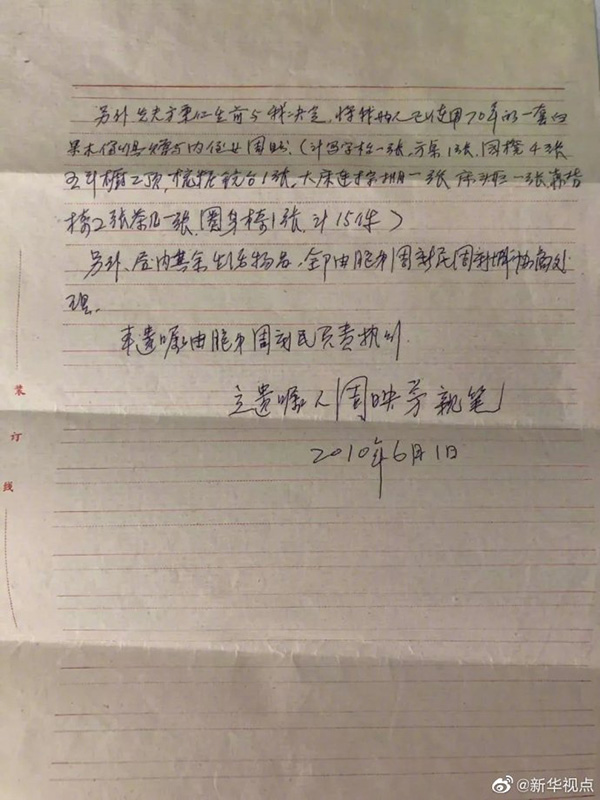 另外先夫方秉仁生前与我决定,将我俩人已使用70年的一套红
果木傢俱赠与内侄女周
(计写字枱一张,方桌1张,园櫈4张
五斗橱二顶,梳粧镜台1张,大床连棕棚一张 床头柜一张,靠背
椅2张茶几一张,圈身椅1张,计15件)
另外,屋内其余生活物品,全部由胞弟周新民周新 协商处
理。
本遗嘱由胞弟周新民负责执行.
立遗嘱人周映芳亲笔
2010年6月1日
装
订
线
@新华视点